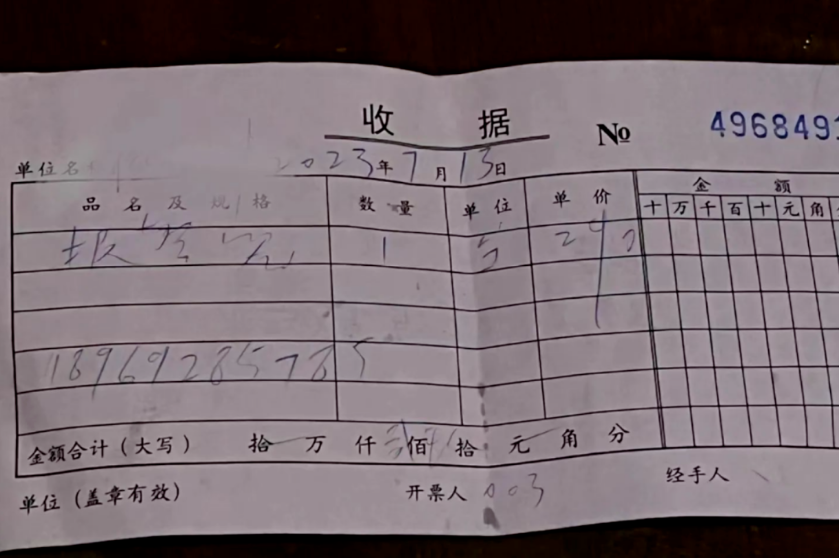 收 据 № 4968491
单位名 2023年7月13日
品名及规格 数量 单位 单价 金额
十万千百十元角
1 台
18969285785
金额合计（大写） 拾 万 仟 佰 拾 元 角 分
单位（盖章有效） 开票人 003 经手人